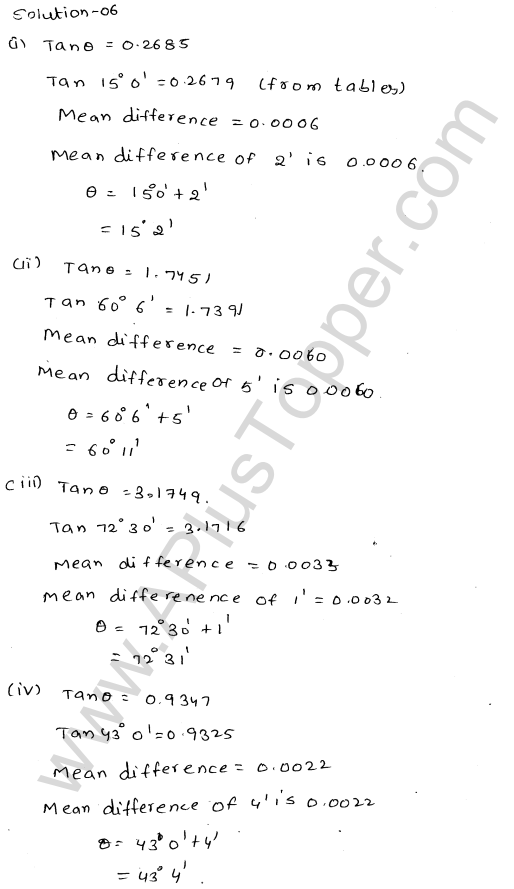 Solution-06
(i) Tanθ = 0.2685
Tan 15° 0' = 0.2679 (from tables)
Mean difference = 0.0006
Mean difference of 2' is 0.0006.
θ = 15°0' + 2'
= 15° 2'
(ii) Tanθ = 1.7451
Tan 60° 6' = 1.7391
Mean difference = 0.0060
Mean difference of 5' is 0.0060.
θ = 60°6' + 5'
= 60° 11'
(iii) Tanθ = 3.1749.
Tan 72° 30' = 3.1716
Mean difference = 0.0033
Mean differenence of 1' = 0.0032
θ = 72°30' + 1'
= 72° 31'
(iv) Tanθ = 0.9347
Tan 43° 0' = 0.9325
Mean difference = 0.0022
Mean difference of 4' is 0.0022
θ = 43° 0' + 4'
= 43° 4'.
www.APlusTopper.com